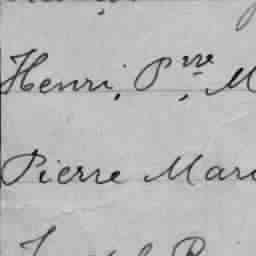 Henri, Pʳʳᵉ M
Pierre Mar